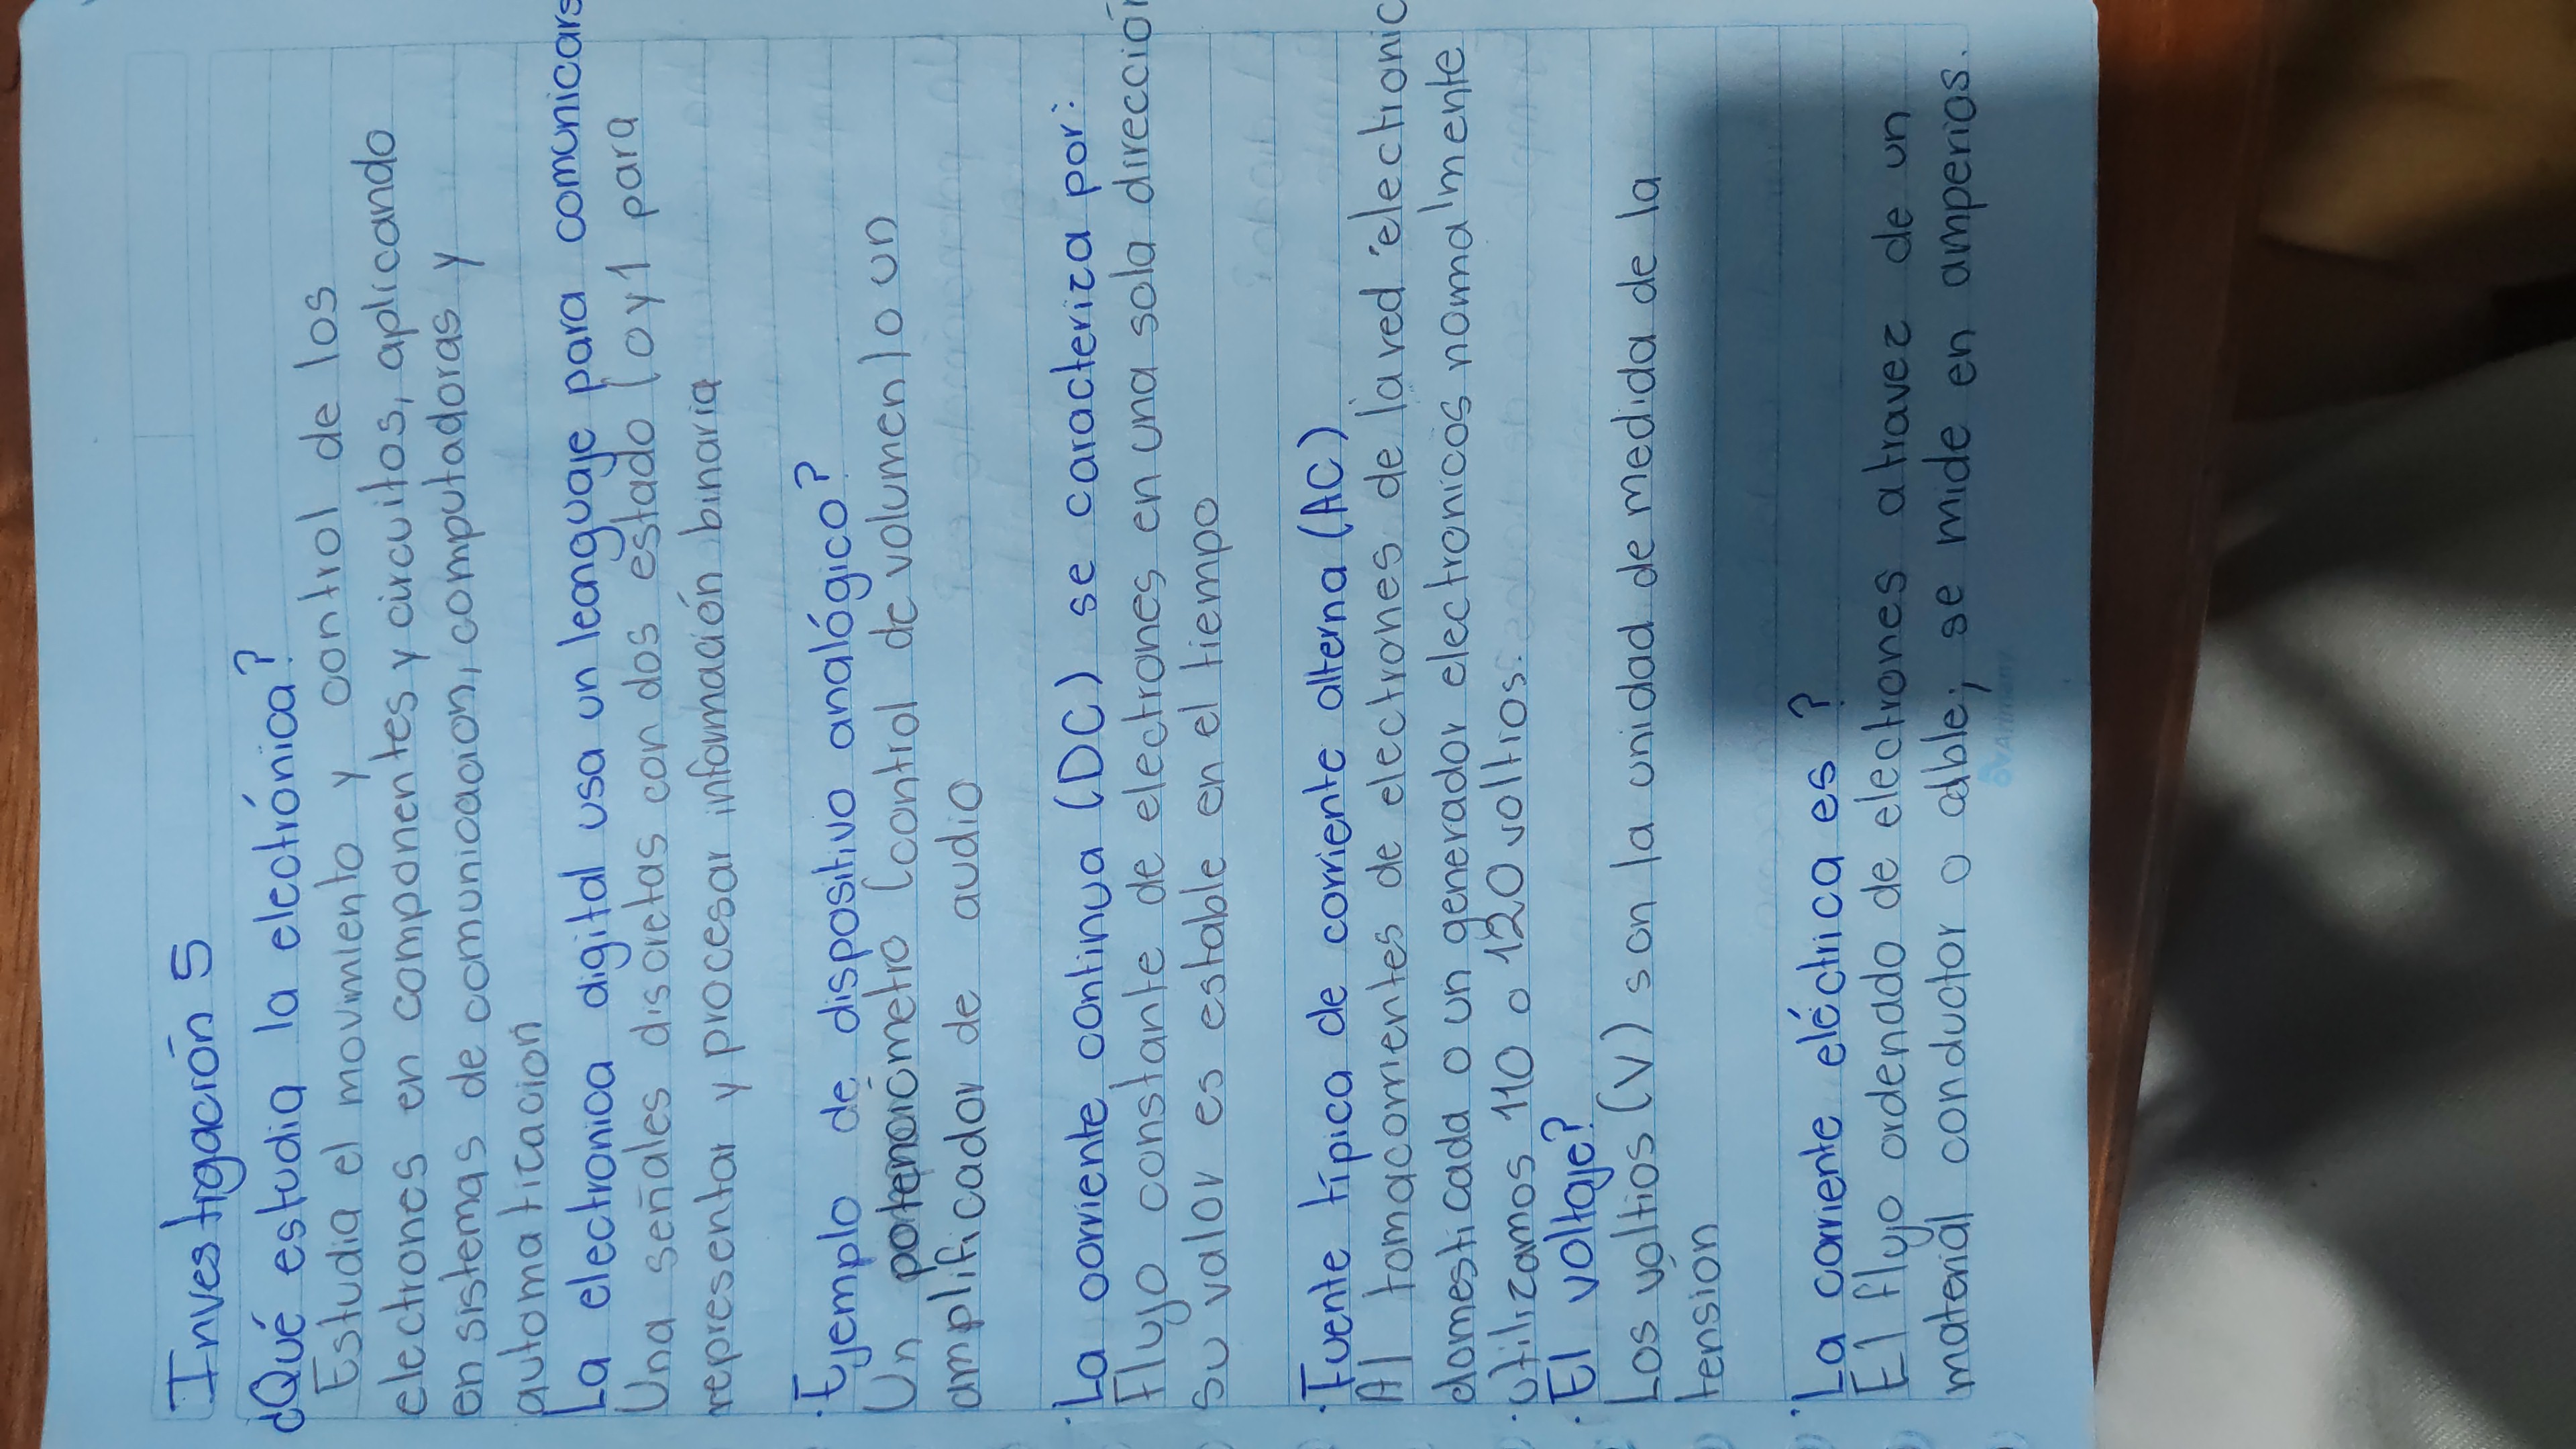 Investigación 5
¿Qué estudia la electrónica?
Estudia el movimiento y control de los
electrones en componentes y circuitos, aplicando
en sistemas de comunicacion, computadoras y
automatizacion
La electronica digital usa un leanguaje para comunicars
Una señales discretas con dos estado (0 y 1 para
representar y procesar información binaria
· Ejemplo de dispositivo analógico?
Un potenciómetro (control de volumen) o un
amplificador de audio
· La corriente continua (DC) se caracteriza por:
Flujo constante de electrones en una sola dirección
su valor es estable en el tiempo
· Fuente típica de corriente alterna (AC)
Al tomacorrientes de electrones de la red electronic
domesticada o un generador electronicos normalmente
· utilizamos 110 o 120 voltios.
· El voltaje?
Los voltios (V) son la unidad de medida de la
tension
· La corriente eléctrica es ?
El flujo ordenado de electrones atravez de un
material conductor o cable; se mide en amperios.